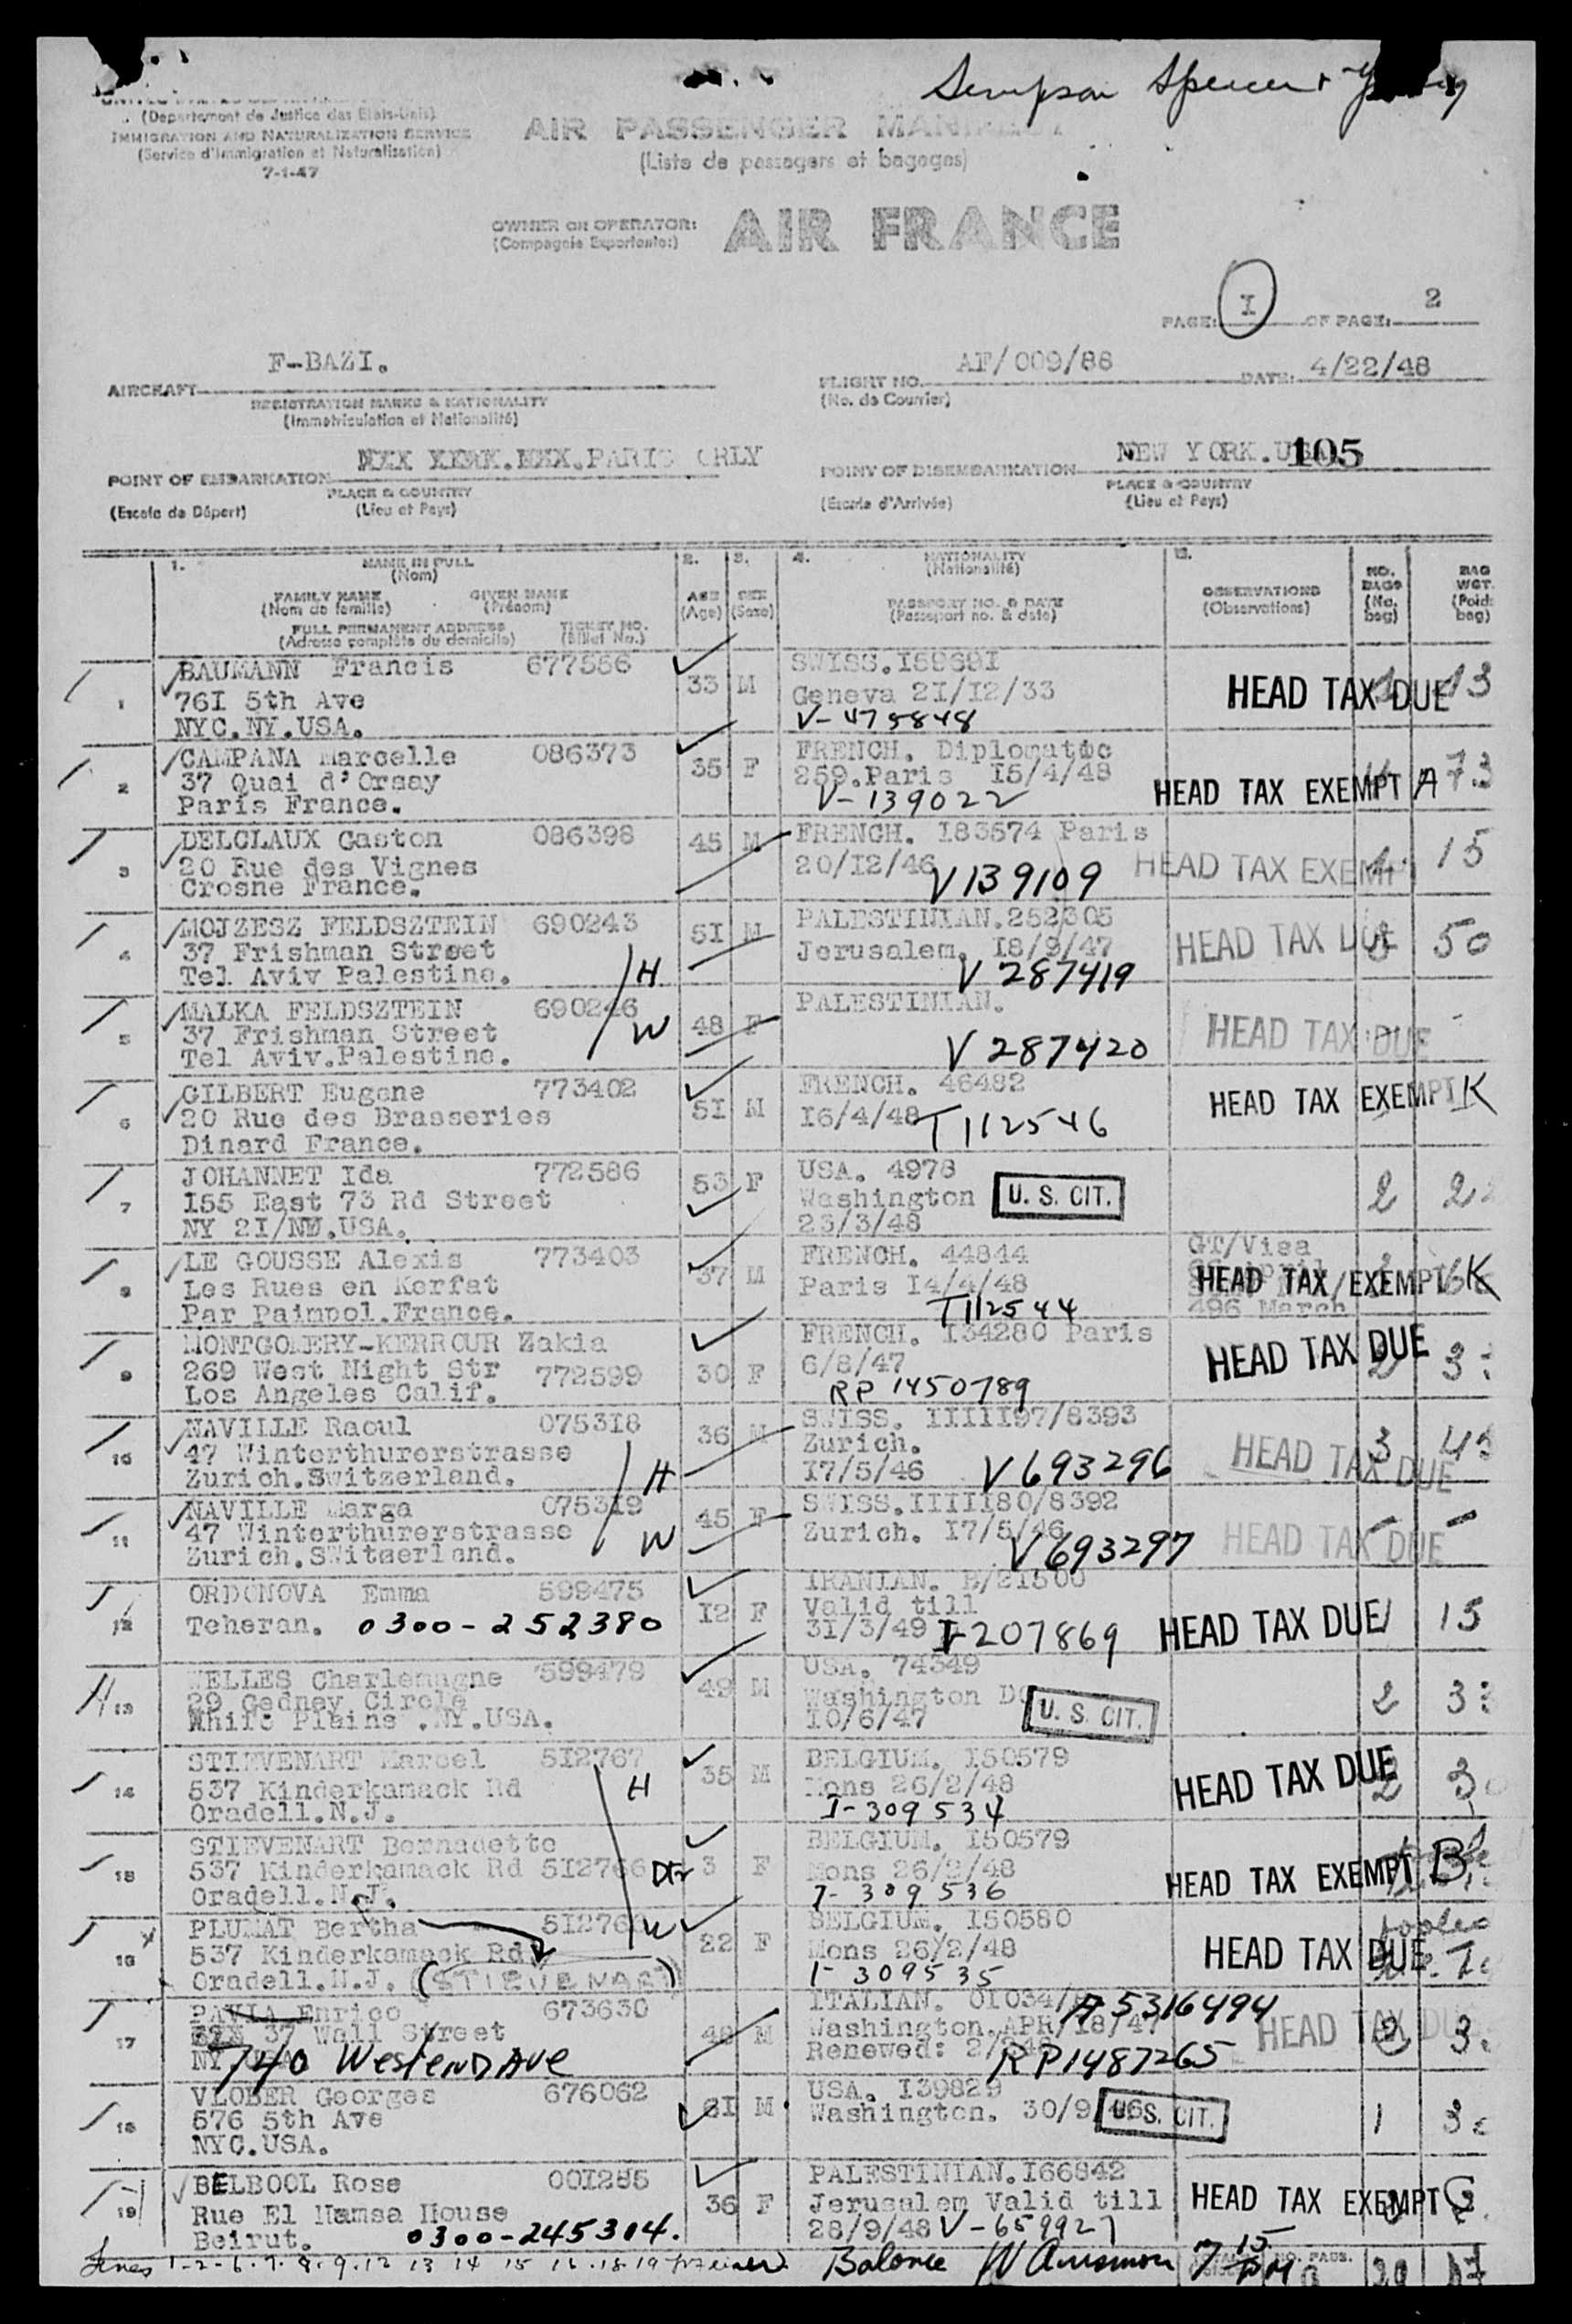 Simpson Spencer +
(Departement de Justice des Etats-Unis)
IMMIGRATION AND NATURALIZATION SERVICE
(Service d'Immigration et Naturalisation)
7-1-47
AIR PASSENGER MANIFEST
(Liste de passagers et bagages)
OWNER OR OPERATOR: AIR FRANCE
(Compagnie Exportente:)
PAGE: I OF PAGE: 2
AIRCRAFT F-BAZI.
REGISTRATION MARKS & NATIONALITY
(Immatriculation et Nationalité)
FLIGHT NO. AF/009/88 DATE: 4/22/48
(No. de Courrier)
POINT OF EMBARKATION PARIS ORLY
PLACE & COUNTRY
(Escale de Départ) (Lieu et Pays)
POINT OF DISEMBARKATION NEW YORK.USA. 105
PLACE & COUNTRY
(Escale d'Arrivée) (Lieu et Pays)
1. NAME IN FULL (Nom)
FAMILY NAME (Nom de famille) GIVEN NAME (Prénom)
FULL PERMANENT ADDRESS (Adresse complète du domicile) TICKET NO. (Billet No.)
2. AGE (Age)
3. SEX (Sexe)
4. NATIONALITY (Nationalité)
PASSPORT NO. & DATE (Passeport no. & date)
OBSERVATIONS (Observations)
NO. BAGS (No. bag)
BAG WGT. (Poids bag)
1 BAUMANN Francis 677556 33 M SWISS.I59691
76I 5th Ave Geneva 2I/I2/33 HEAD TAX DUE 13
NYC.NY.USA. V-475848
2 CAMPANA Marcelle 086373 35 F FRENCH. Diplomatic
37 Quai d'Orsay 259.Paris I5/4/48 HEAD TAX EXEMPT A 73
Paris France. V-139022
3 DELCLAUX Gaston 086398 45 M FRENCH. I83574 Paris
20 Rue des Vignes 20/I2/46 HEAD TAX EXEMPT 15
Crosne France. V139109
4 MOJZESZ FELDSZTEIN 690243 5I M PALESTINIAN.252305
37 Frishman Street Jerusalem. I8/9/47 HEAD TAX DUE 50
Tel Aviv Palestine. H V 287419
5 MALKA FELDSZTEIN 690246 48 F PALESTINIAN.
37 Frishman Street W HEAD TAX DUE -
Tel Aviv.Palestine. V 287420
6 GILBERT Eugene 773402 5I M FRENCH. 46482
20 Rue des Brasseries I6/4/48 T112546 HEAD TAX EXEMPT K
Dinard France.
7 JOHANNET Ida 772586 53 F USA. 4978
I55 East 73 Rd Street Washington U. S. CIT. 2 22
NY 2I/NW.USA. 23/3/48
8 LE GOUSSE Alexis 773403 37 M FRENCH. 44844 GT/Visa
Les Rues en Kerfat Paris I4/4/48 HEAD TAX EXEMPT K
Par Paimpol.France. T112544 496 March
9 MONTGOMERY-KERROUR Zakia 30 F FRENCH. I34280 Paris
269 West Night Str 772599 6/8/47 HEAD TAX DUE 2 3
Los Angeles Calif. RP 1450789
10 NAVILLE Raoul 075318 36 M SWISS. IIIII97/8393
47 Winterthurerstrasse Zurich. HEAD TAX DUE 3 45
Zurich.Switzerland. H I7/5/46 V693296
11 NAVILLE Marga 075319 45 F SWISS.IIIII80/8392
47 Winterthurerstrasse Zurich. I7/5/46 HEAD TAX DUE - -
Zurich.SWitzerland. W V693297
12 ORDONOVA Emma 599475 I2 F IRANIAN. B/21500
Teheran. 0300-252380 Valid till
3I/3/49 I-207869 HEAD TAX DUE 15
13 WELLES Charlemagne 599479 49 M USA. 74349
29 Gedney Circle Washington DC U. S. CIT. 2 33
White Plains .NY.USA. I0/6/47
14 STIEVENART Marcel 5I2767 35 M BELGIUM. I50579
537 Kinderkamack Rd H Mons 26/2/48 HEAD TAX DUE 2 30
Oradell.N.J. I-309534
15 STIEVENART Bernadette 3 F BELGIUM. I50579
537 Kinderkamack Rd 5I2766 Dtr Mons 26/2/48 HEAD TAX EXEMPT B
Oradell.N.J. I-309536
16 PLUMAT Bertha 5I276 W 22 F BELGIUM. I50580 pooled
537 Kinderkamack Rd Mons 26/2/48 HEAD TAX DUE
Oradell.N.J. (STIEVENART) I-309535
17 PAVIA Enrico 673630 48 M ITALIAN. 01034/ A5316494
37 Wall Street Washington.APR/I8/47 HEAD TAX DUE 2 3
740 West END Ave Renewed: 2/ RP1487265
18 VLOBER Georges 676062 6I M USA. I39829
576 5th Ave Washington. 30/9/46 U. S. CIT. 1 3
NYC.USA.
19 BELBOOL Rose 00I285 36 F PALESTINIAN.I66842
Rue El Hamsa House Jerusalem Valid till HEAD TAX EXEMPT
Beirut. 0300-245304. 28/9/48 V-659927
Lines 1-2-6-7-8-9-12 13 14 15 16-18-19 Balance 7 15 PM NO. PASS.